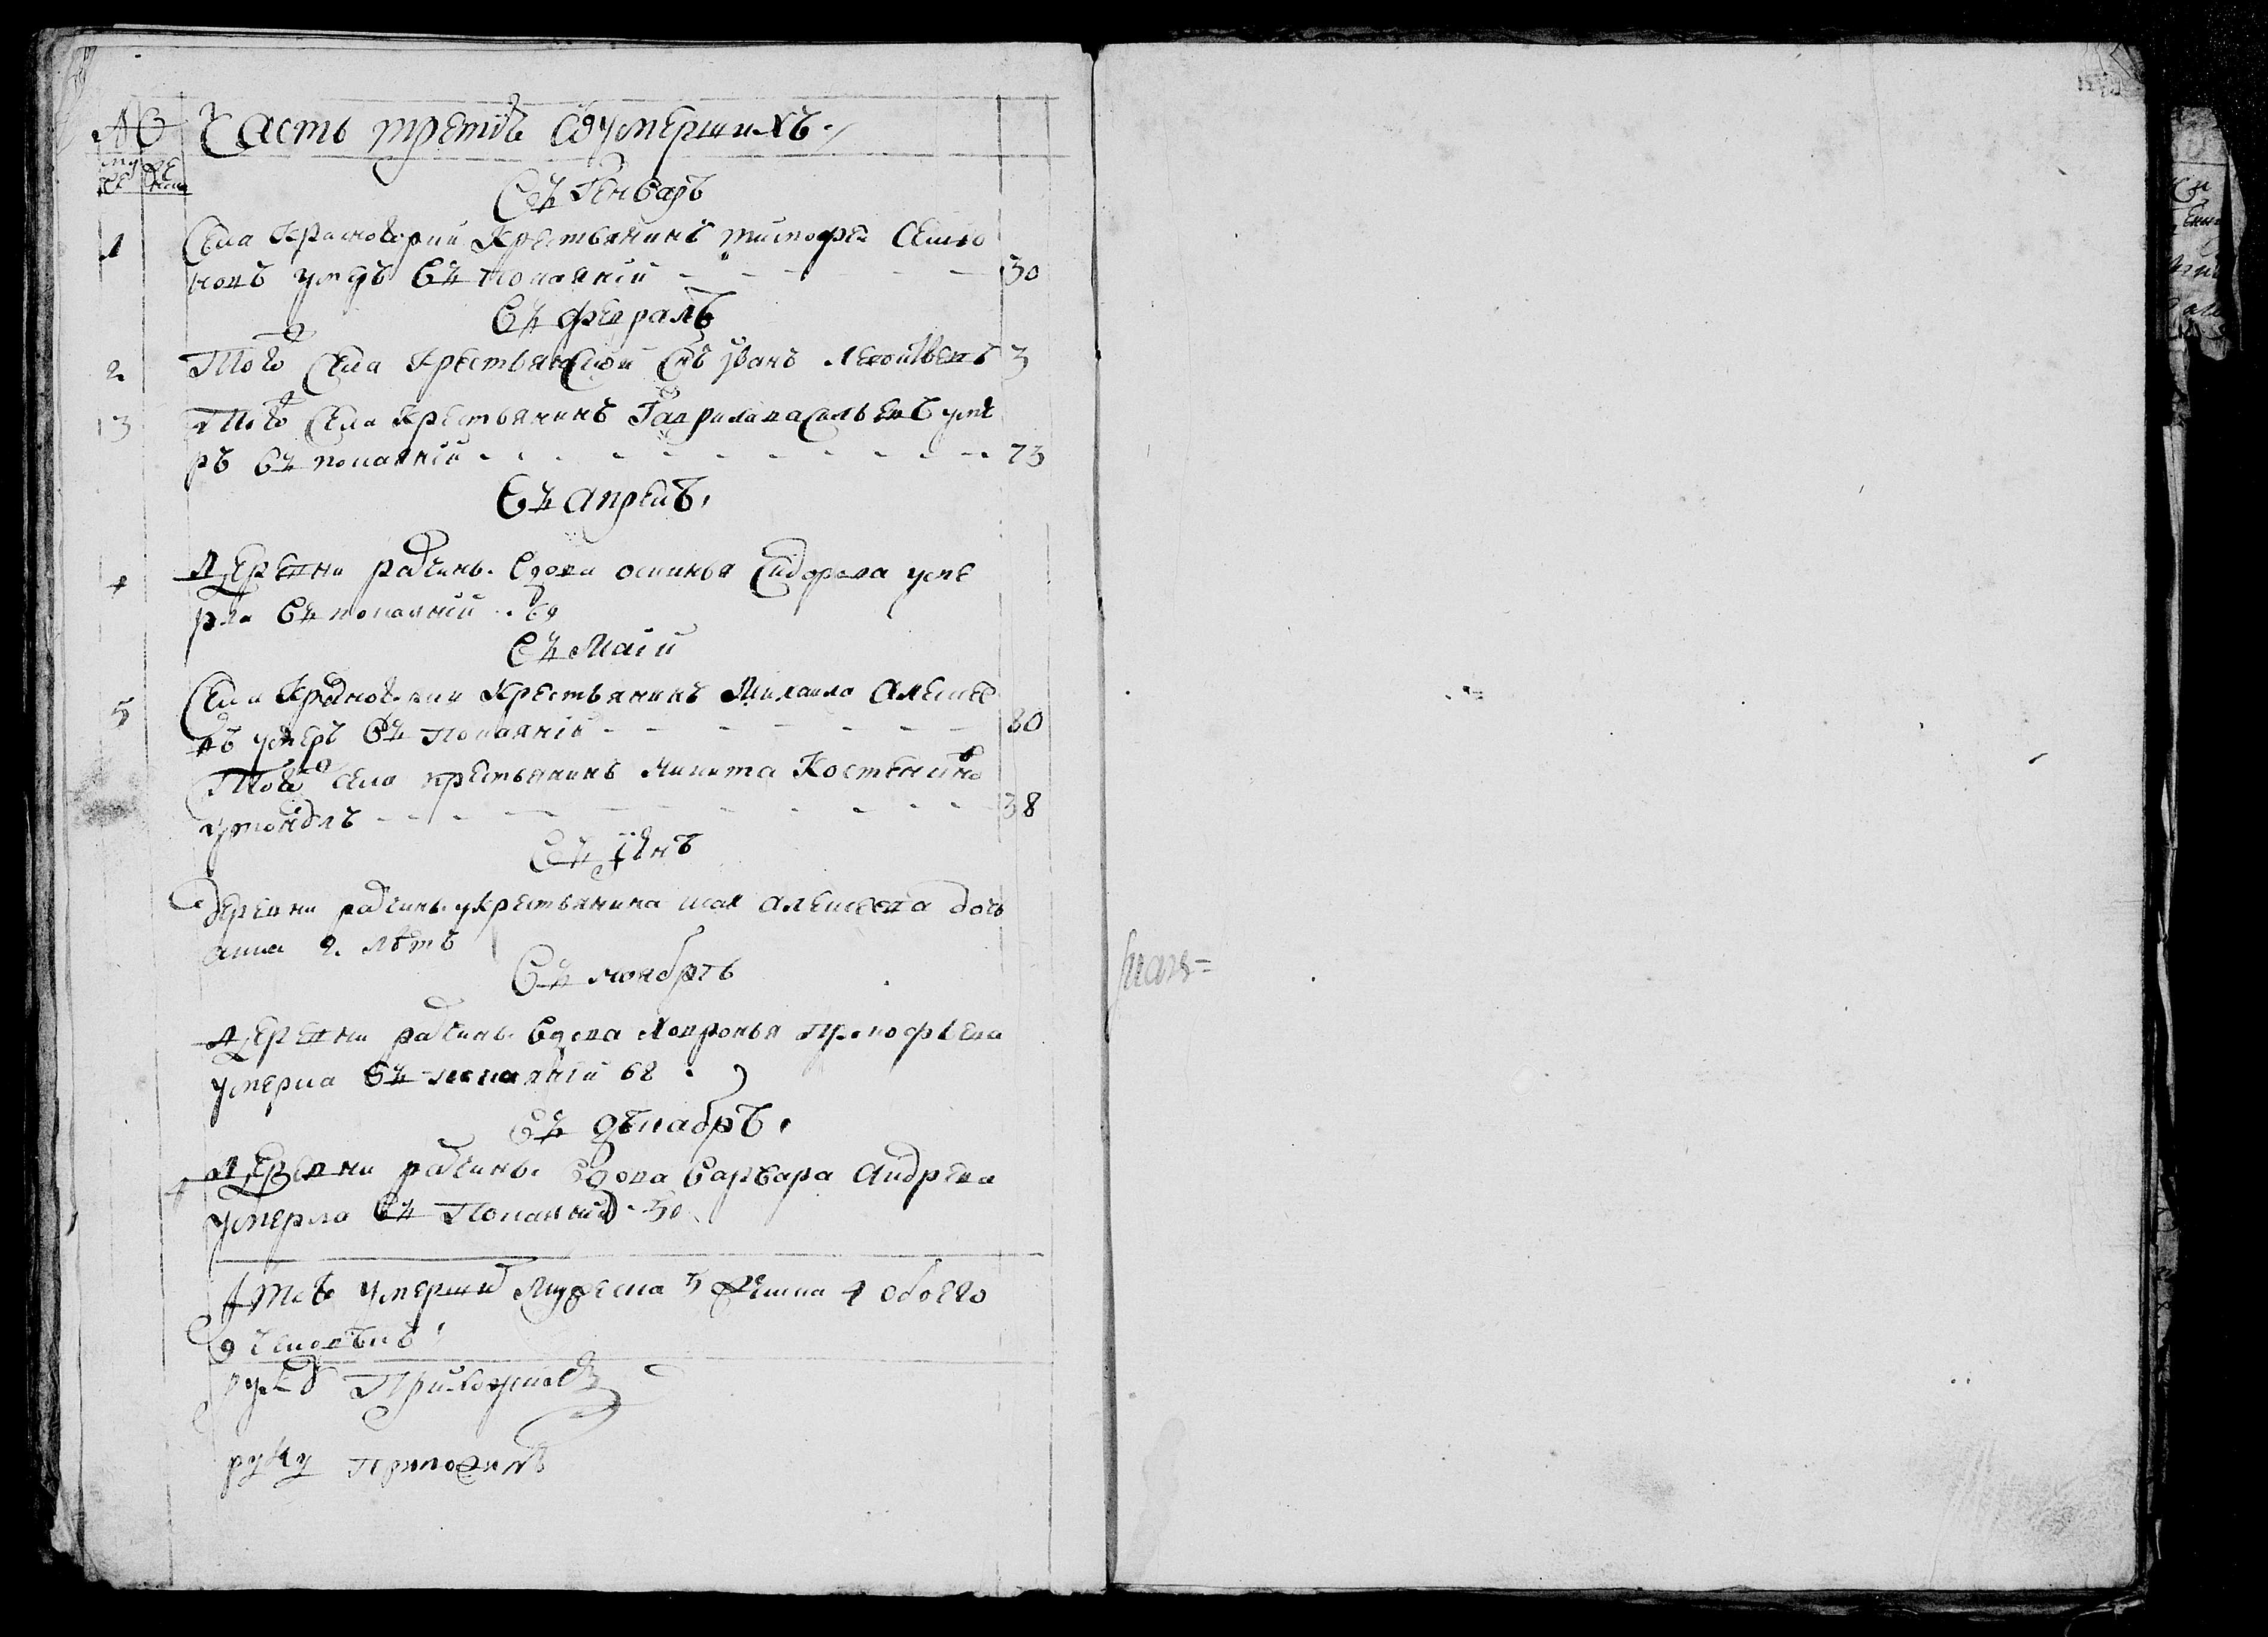 Часть третія ѡ умершихъ
му же
ск ска
Въ Генварѣ
1 Села Красногория Крестьянинъ тимофеи Семио
новъ умеръ въ покаянии 30
Въ февралѣ
2 Того Села Крестьянской Снъ иванъ Леонтьевъ 3
3 Того Села Крестьянинъ Гаврила васильевъ уме
ръ въ покаянии 73
Въ апрелѣ
4 Деревни радчинъ вдова осинья Сидорова уме
рла въ покаянии 69
Въ Маии
5 Села Красногории Крестьянинъ Михаила Алексее
въ умеръ въ Покаянии 80
Того села крестьянинъ Никита Костентинов
утонулъ 38
Въ июнѣ
деревни радчинъ у крестьянина исая алексеева дочь
анна 2 лѣтъ
Въ ноябрѣ
Деревни радчинъ вдова Ховронья Прокофьева
умерла въ покаянии 68
Въ декабрѣ
4 Деревни радчинъ вдова варвара Андреева
умерла въ Покаянии 50
Итого умерших Мужеска 5 Женска 4 обоего
9 человѣкъ
руку Приложилъ
руку приложилъ